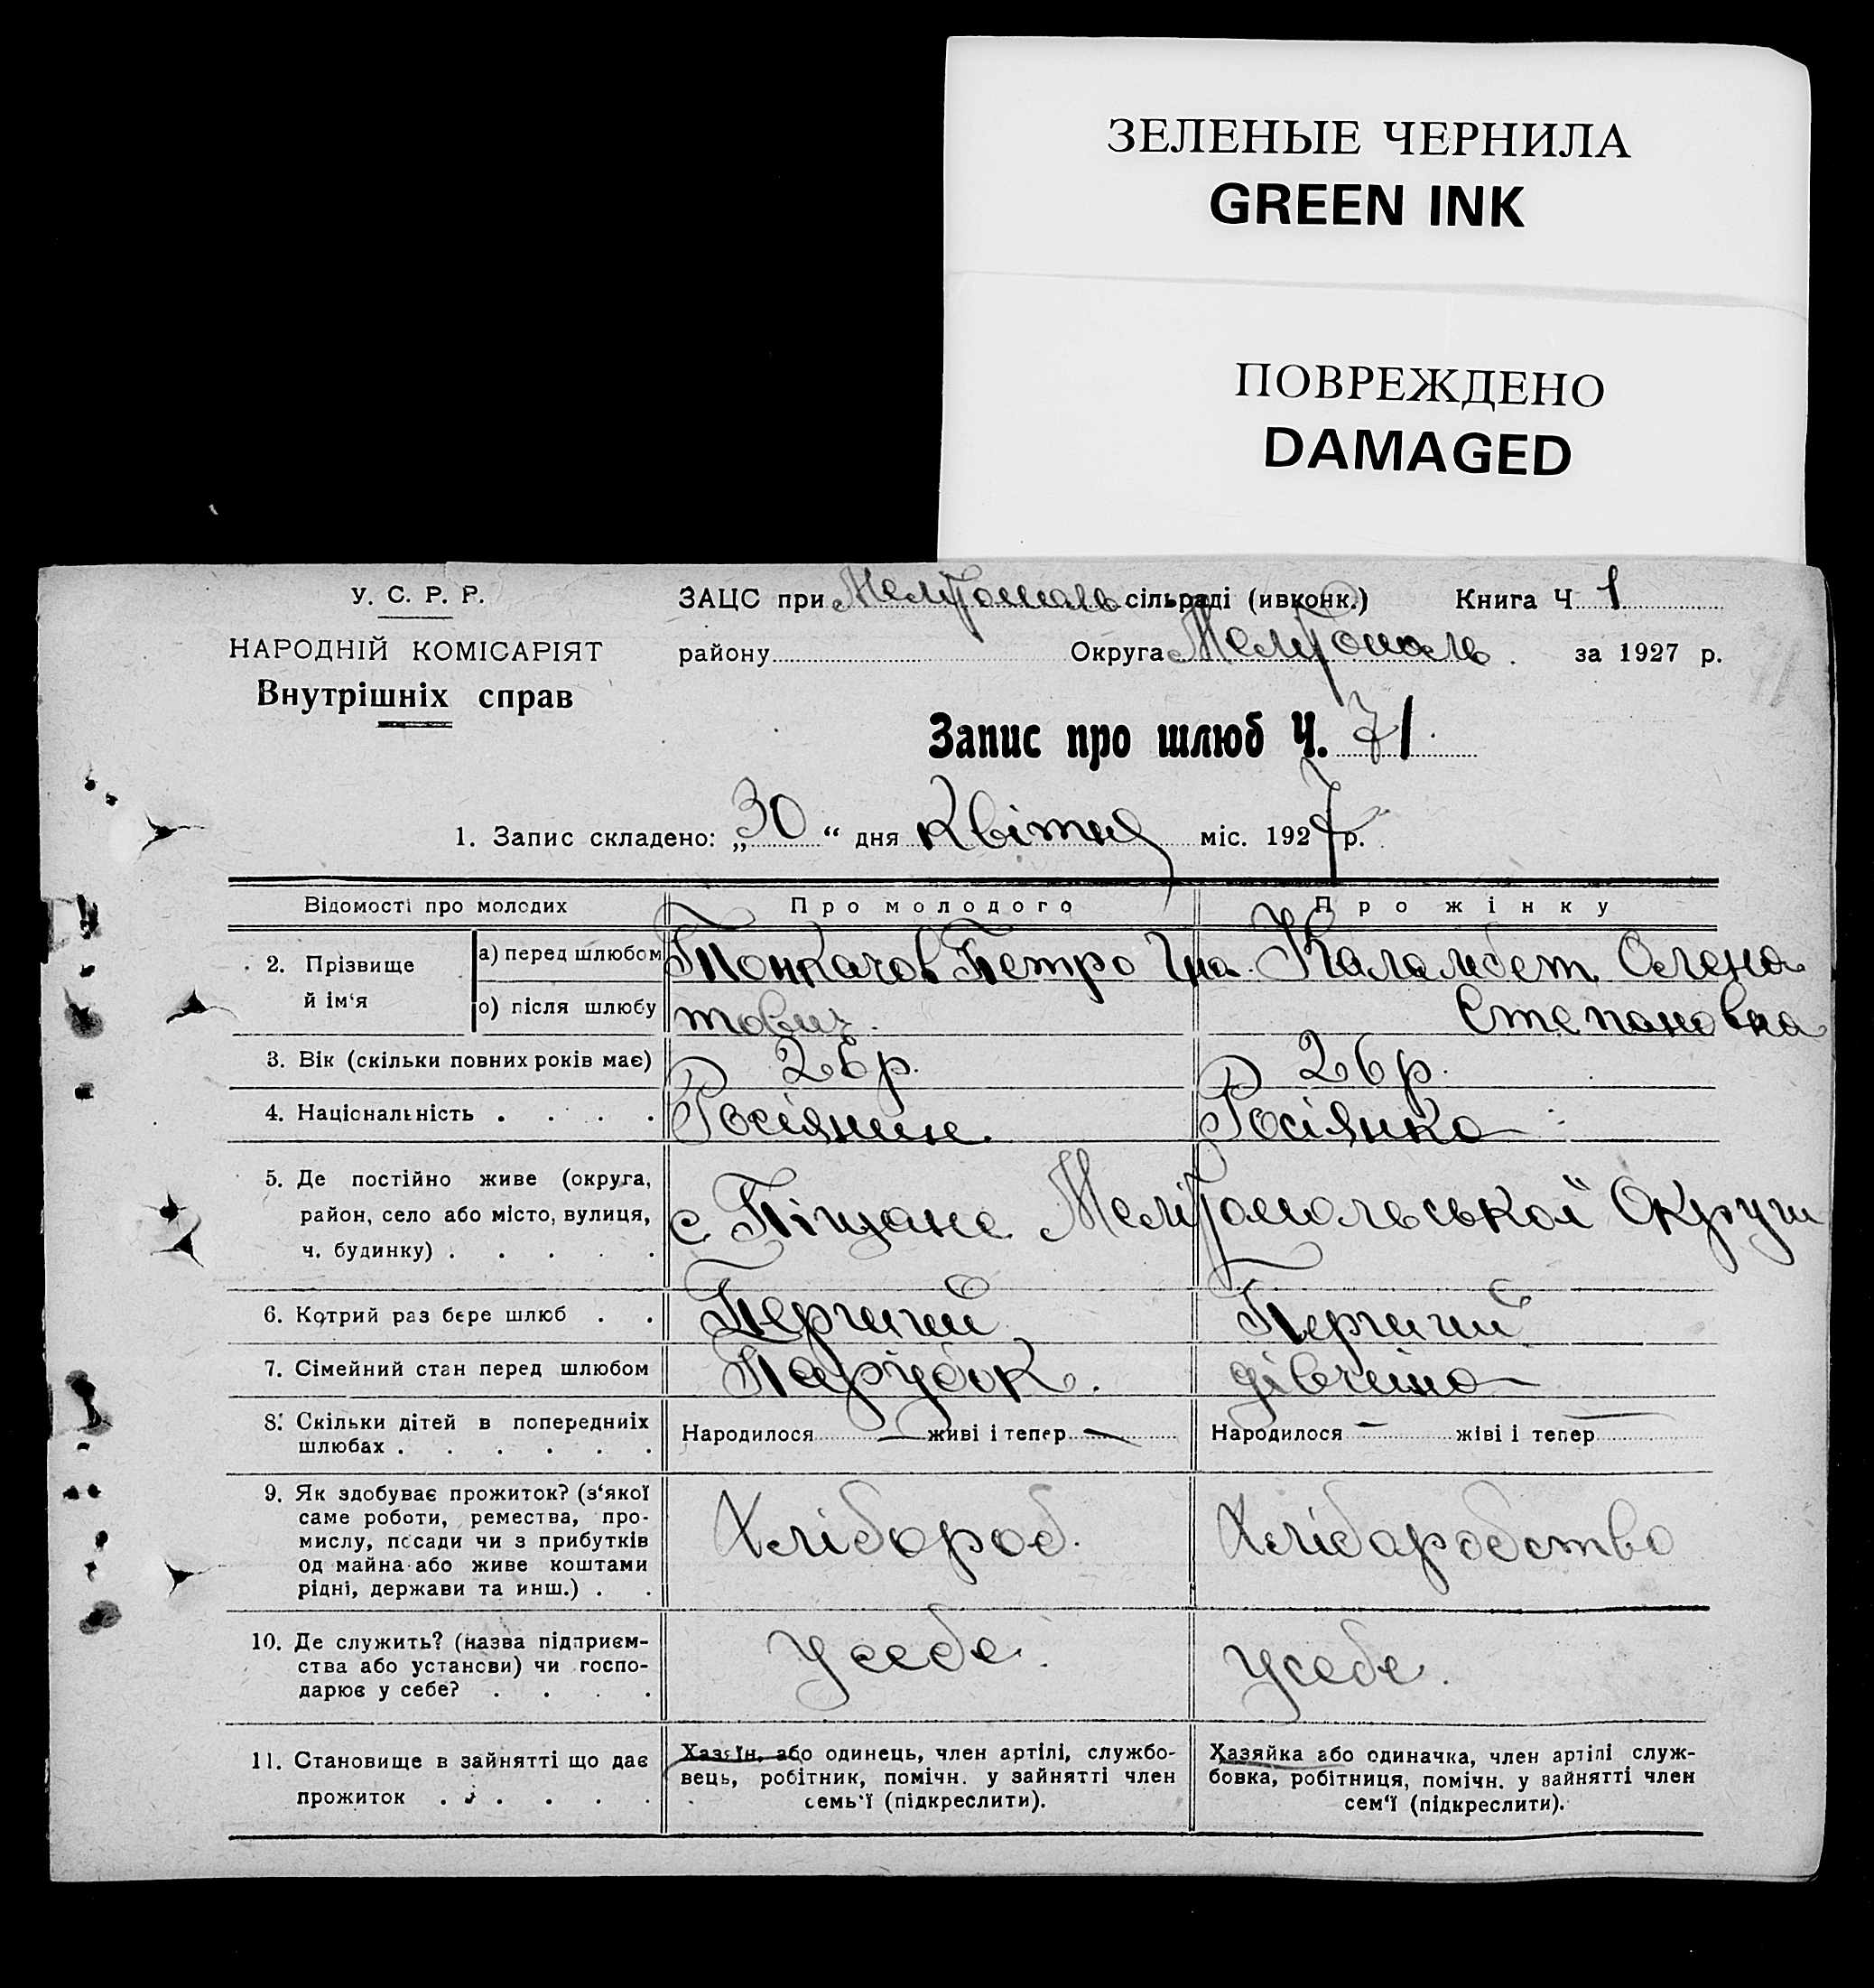 ЗЕЛЕНЫЕ ЧЕРНИЛА
GREEN INK
ПОВРЕЖДЕНО
DAMAGED
У. С. Р. Р.
НАРОДНІЙ КОМІСАРІЯТ
Внутрішніх справ
ЗАЦС при Мелітополь сільраді (ивконк.) Книга Ч 1
району Округа Мелітополь. за 1927 р.
Запис про шлюб Ч. 71.
1. Запис складено: „30“ дня Квітня міс. 1927 р.
Відомості про молодих Про молодого Про жінку
2. Прізвище й ім‘я
а) перед шлюбом Тонкачов Петро Гна- Каламбет Олена
о) після шлюбу тович. Степановна
3. Вік (скільки повних років має) 26 р. 26 р.
4. Національність . . . . Росіянин. Росіянка
5. Де постійно живе (округа,
район, село або місто, вулиця,
ч. будинку) . . . . .
с. Піщане Мелітопольської Округи
6. Котрий раз бере шлюб . . Перший Перший
7. Сімейний стан перед шлюбом Парубок. дівчина
8. Скільки дітей в попередниіх
шлюбах . . . . . .
Народилося — живі і тепер — Народилося — жіві і тепер —
9. Як здобуває прожиток? (з‘якої
саме роботи, ремества, про-
мислу, посади чи з прибутків
од майна або живе коштами
рідні, держави та инш.) . .
Хлібороб. Хліборобство
10. Де служить? (назва підприєм-
ства або установи) чи госпо-
дарює у себе? . . . .
У себе. У себе.
11. Становище в зайнятті що дає
прожиток . . . . . .
Хазяїн, або одинець, член артілі, службо-
вець, робітник, помічн. у зайнятті член
семь‘ї (підкреслити).
Хазяйка або одиначка, член артілі служ-
бовка, робітниця, помічн. у зайнятті член
сем‘ї (підкреслити).